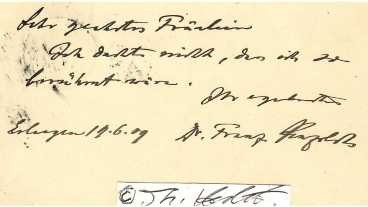 Sehr geehrtes Fräulein
Ich dachte nicht, das ich so
berühmt wäre.
Ihr ergebenster
Erlangen 19.6.09 Dr. Franz Penzoldt
© Th. Vecht